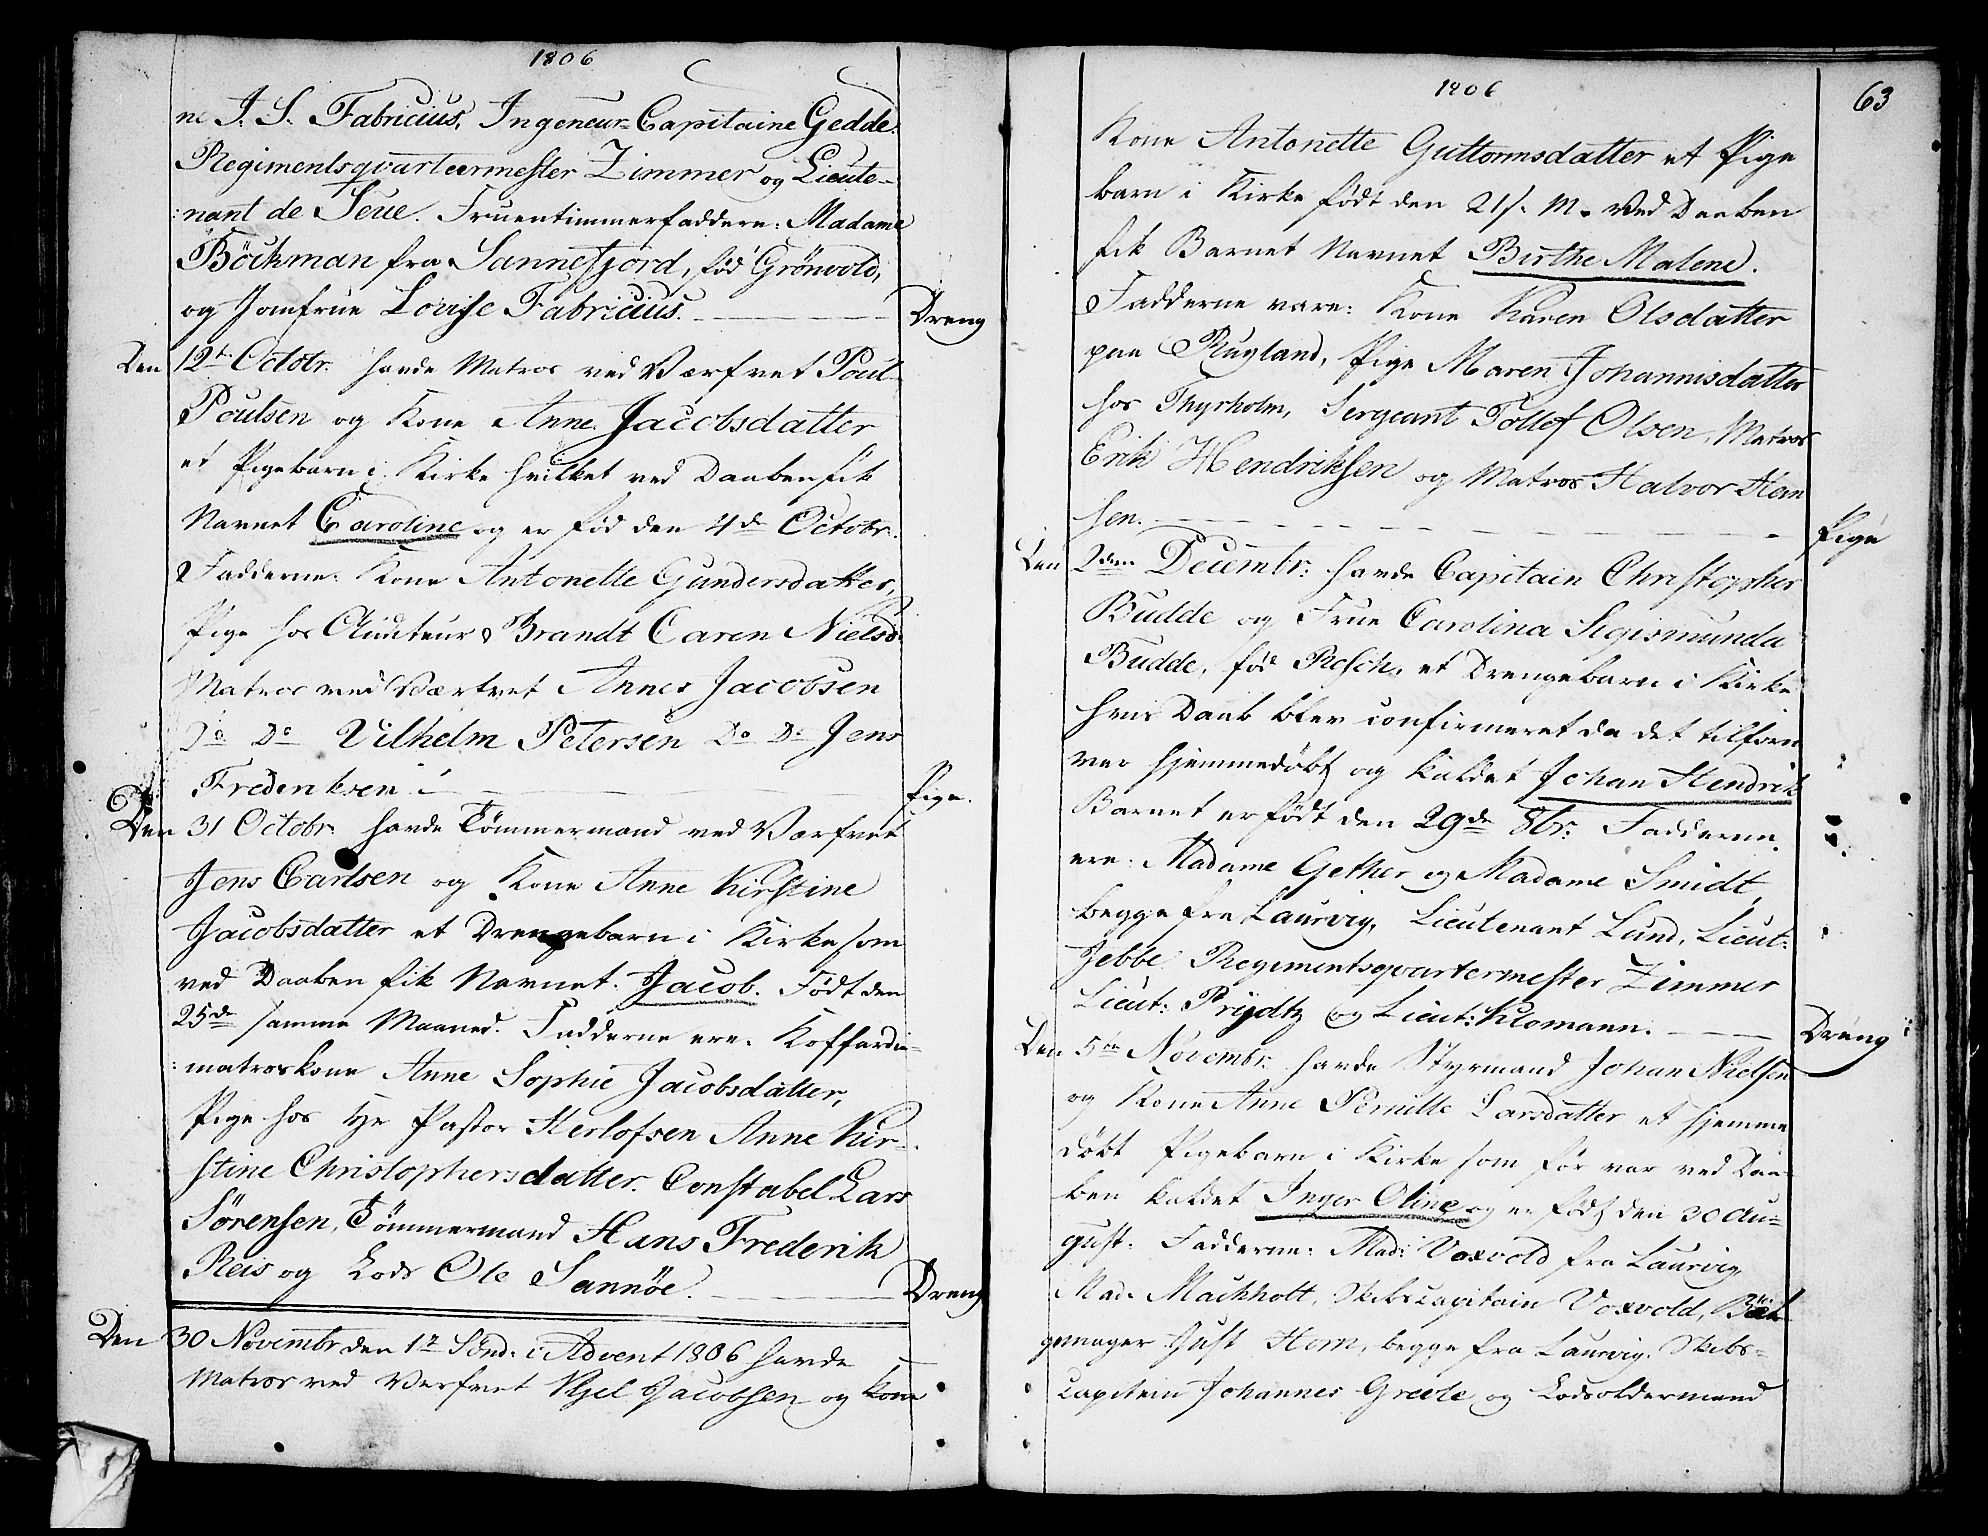 1806
ne J. S. Fabricius, Ingeneur-Capitaine Gedde.
Regimentsqvarteermester Zimmer og Lieute-
:nant de Seue. Fruentimmerfaddere: Madame
Böckman fra Sannefjord, fød Grönvold,
og Jomfrue Lovise Fabricius.
Dreng
Den 12te Octobr. havde Matros ved Værfvet Poul
Poulsen og Kone Anne Jacobsdatter
et Pigebarn i Kirke hvilket ved Daaben fik
Navnet Caroline og er fød den 4de Octobr.
Fadderne: Kone Antonette Gundersdatter,
Pige hos Auditeur Brandt Caren Nielsd.
Matros ved Værfvet Annes Jacobsen
Do Do Vilhelm Petersen Do Do Jens
Frederiksen
Pige.
Den 31 Octobr. havde Tömmermand ved Værfvet
Jens Carlsen og Kone Anne Kirstine
Jacobsdatter et Drengebarn i Kirke som
ved Daaben fik Navnet. Jacob. Födt den
25de samme Maaned. Fadderne ere. Koffardie-
:matroskone Anne Sophie Jacobsdatter,
Pige hos Hr Pastor Herlofsen Anne Kir-
stine Christophersdatter. Constabel Lars
Sörensen, Tömmermand Hans Frederik
Reis og Lods Ole Sannöe.
Dreng
Den 30 Novembr. den 1te Sönd: i Advent 1806 havde
Matros ved Verfvet Kjel Jacobsen og Kone
1806
63
Kone Antonette Guttormsdatter et Pige
barn i Kirke födt den 21/. M. Ved Daaben
fik Barnet Navnet Birthe Malene.
Fadderne vare: Kone Karen Olsdatter
paa Rugland, Pige Maren Johannisdatter
hos Thyrholm, Sergeant Tollef Olsen, Matros
Erik Hendriksen og Matros Halvor Han
sen.
Pige
Den 2den Decembr: havde Capitain Christopher
Budde og Frue Carolina Sigismunda
Budde, fød Resch, et Drengebarn i Kirke
hvis Daab blev confirmeret da det tilforn
var hjemmedøbt og kaldet Johan Hendrik
Barnet er födt den 29de 8br: Fadderne
ere: Madame Gether og Madame Smidt,
begge fra Laurvig, Lieutenant Lund, Lieut:
Jebbe Regimentsqvartermester Zimmer
Lieut: Prydtz og Lieut: Klomann.
Dreng
Den 5te Novembr: havde Styrmand Johan Nielsen
og Kone Anne Pernille Larsdatter et hjemme
døbt Pigebarn i Kirke som før var ved Daa-
ben kaldet Inger Oline og er født den 30 Au-
gust. Fadderne: Mad: Voxvold fra Laurvig,
Mad. Machholt, Skibscapitain Voxvold, Bök-
gemager Just Horn, begge fra Laurvig. Skibs-
Capitain Johannes Greele og Lodsoldermand